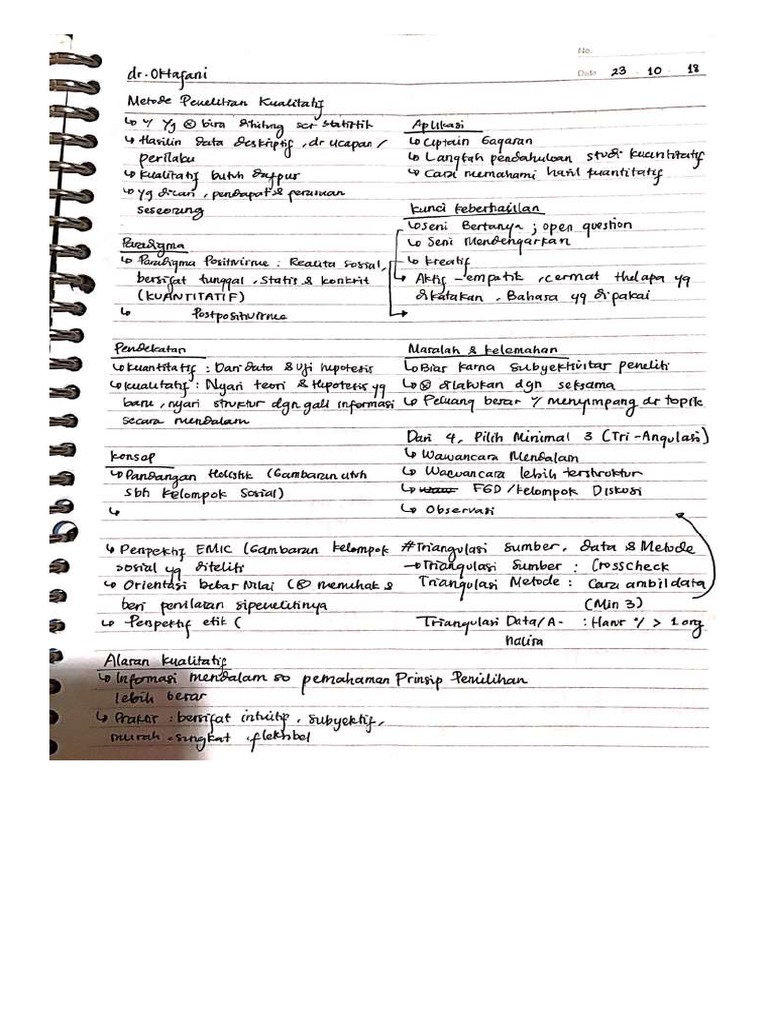 No.
dr. Oktafani
Date 23 . 10 . 18
Metode Penelitian Kualitatif
↳ U/ Yg ⊗ bisa dihitung scr statistik
↳ Hasilin data deskriptif, dr ucapan /
perilaku
↳ Kualitatif butuh
↳ Yg dicari, pendapat & perasaan
seseorang
Paradigma
↳ Paradigma Positivisme : Realita sosial,
bersifat tunggal, statis & konkrit
(KUANTITATIF)
↳ Postpositivisme
Pendekatan
↳ Kuantitatif : Dari data & Uji hipotesis
↳ Kualitatif : Nyari teori & Hipotesis yg
baru, nyari struktur dgn gali informasi
secara mendalam
Konsep
↳ Pandangan Holistik (Gambaran utuh
sbh Kelompok Sosial)
↳
↳ Perspektif EMIC (Gambaran kelompok
sosial yg diteliti
↳ Orientasi bebas Nilai (⊗ memihak &
beri penilaian sipenelitinya
↳ Perspektif etik (
Alasan Kualitatif
↳ Informasi mendalam so pemahaman Prinsip Pemilihan
lebih besar
↳ Praktis : bersifat intuitif, subyektif,
murah, singkat, fleksibel
Aplikasi
↳ Ciptain Gagasan
↳ Langkah pendahuluan studi kuantitatif
↳ Cara memahami hasil kuantitatif
Kunci keberhasilan
↳ Seni Bertanya ; open question
↳ Seni Mendengarkan
↳ Kreatif
↳ Aktif - empatik, cermat thdapa yg
dikatakan, Bahasa yg dipakai
Masalah & kelemahan
↳ Bias karna subyektivitas peneliti
↳ ⊗ dilakukan dgn seksama
↳ Peluang besar u/ menyimpang dr topik
Dari 4, Pilih Minimal 3 (Tri-Angulasi)
↳ Wawancara Mendalam
↳ Wawancara lebih terstruktur
↳ FGD / Kelompok Diskusi
↳ Observasi
# Triangulasi sumber, data & Metode
→ Triangulasi Sumber : Crosscheck
Triangulasi Metode : Cara ambil data
(Min 3)
Triangulasi Data/A- : Harus > 1 org
nalisa